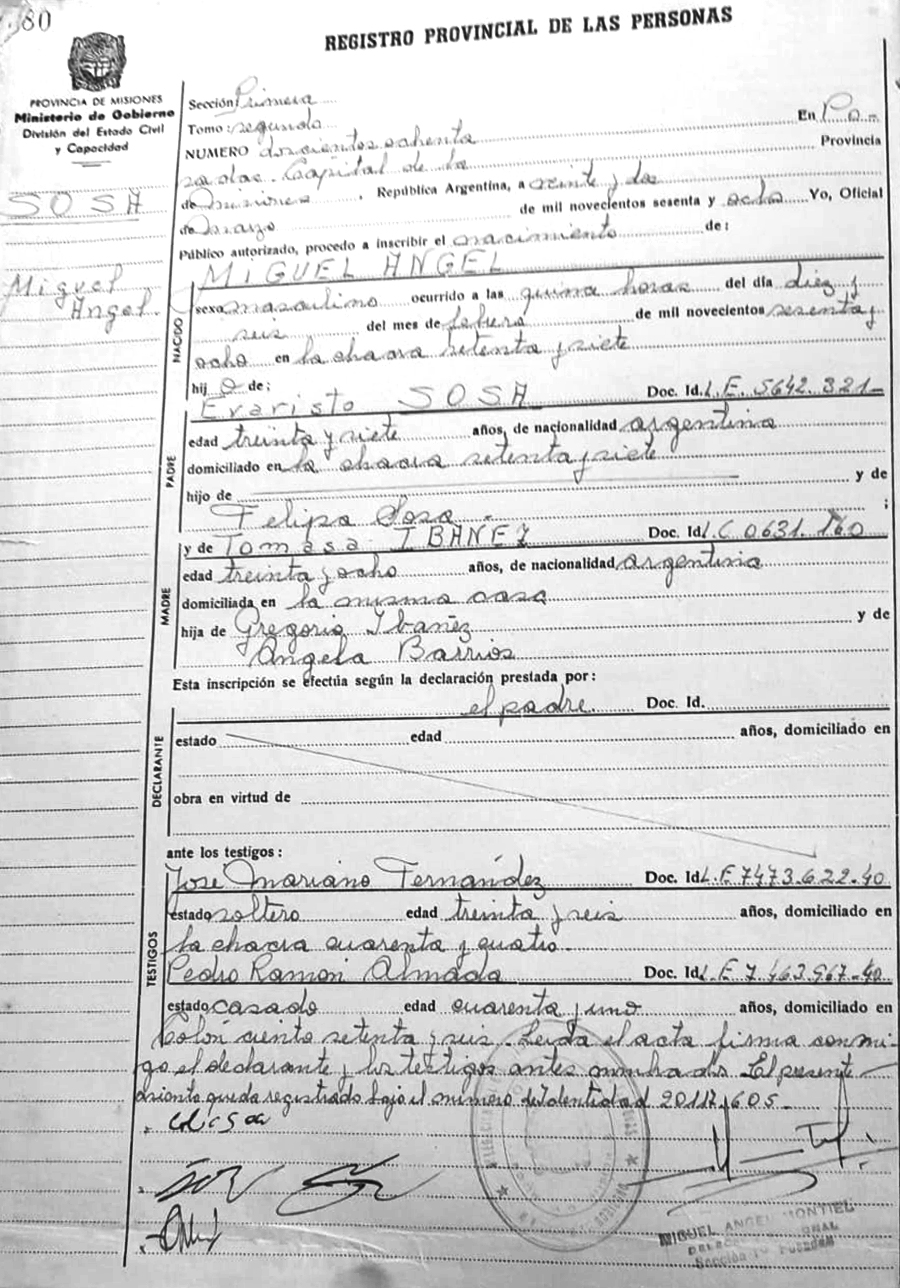 80
REGISTRO PROVINCIAL DE LAS PERSONAS
PROVINCIA DE MISIONES
Ministerio de Gobierno
División del Estado Civil
y Capacidad
SOSA
Miguel
Angel.
Sección Primera
Tomo segundo En Po-
NUMERO doscientos ochenta Provincia
sadas. Capital de la
de Misiones, República Argentina, a veinte y dos
de Marzo de mil novecientos sesenta y ocho Yo, Oficial
Público autorizado, procedo a inscribir el nacimiento de:
NACIDO
MIGUEL ANGEL
sexo masculino ocurrido a las quince horas del día diez y
seis del mes de febrero de mil novecientos sesenta y
ocho en la chacra setenta y siete
hijo de:
PADRE
Evaristo SOSA Doc. Id. L.E. 5642.321-
edad treinta y siete años, de nacionalidad argentina
domiciliado en la chacra setenta y siete
hijo de y de
Felipa Sosa ;
MADRE
y de Tomasa IBAÑEZ Doc. Id. L.C 0631.160
edad treinta y ocho años, de nacionalidad argentina
domiciliada en la misma casa
hija de Gregorio Ibañez y de
Angela Barrios
Esta inscripción se efectúa según la declaración prestada por:
DECLARANTE
el padre. Doc. Id.
estado edad años, domiciliado en
obra en virtud de
ante los testigos:
TESTIGOS
José Mariano Fernández Doc. Id. L.E. 7473.622-40
estado soltero edad treinta y seis años, domiciliado en
la chacra cuarenta y cuatro.
Pedro Ramón Almada Doc. Id. L.E. 7.463.967-40
estado casado edad cuarenta y uno años, domiciliado en
Colón ciento setenta y seis. Leída el acta firma conmi-
go el declarante y los testigos antes nombrados. El presente
asiento queda registrado bajo el número de Identidad 20.117.605-
MIGUEL ANGEL MONTIEL
Sección 1º POSADAS